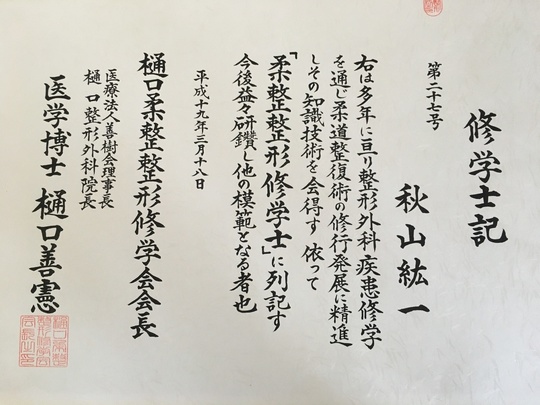 修学士記
第二十七号
秋山紘一
右は多年に亘り整形外科疾患修学
を通じ柔道整復術の修行発展に精進
しその知識技術を会得す 依って
「柔整整形修学士」に列記す
今後益々研鑽し他の模範となる者也
平成十九年三月十八日
樋口柔整整形修学会会長
医療法人善樹会理事長
樋口整形外科院長
医学博士 樋口善憲